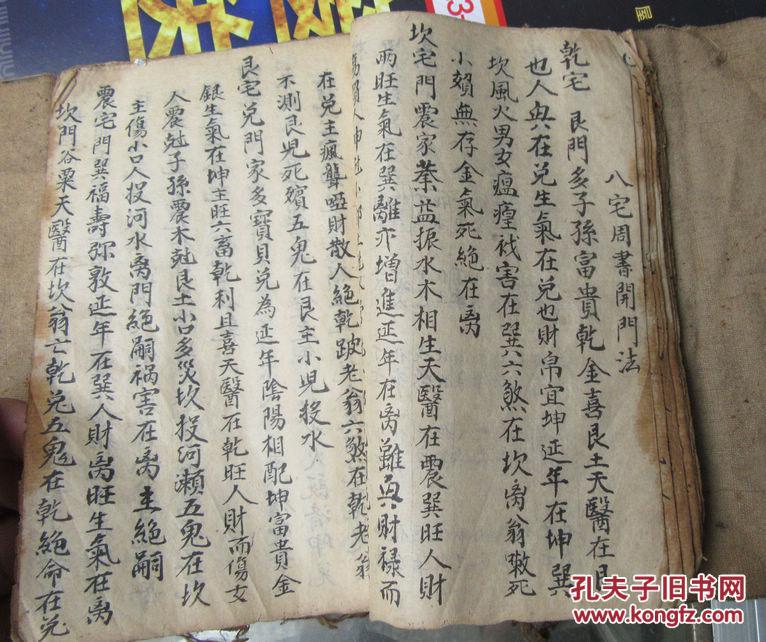 八宅周書開門法
乾宅 艮門多子孫富貴乾金喜艮土天醫在艮
也人與在兌生氣在兌也財帛宜坤延年在坤巽
坎風火男女瘟㾮戕害在巽六煞在坎离翁嗽死
小賴無存金氣死絶在离
坎宅門震家業益振水木相生天醫在震巽旺人財
兩旺生氣在巽離亦增進延年在离雖與財禄而
在兌主瘋聾啞財散人絶乾跛老翁六煞在乾老翁
不測艮児死殯五鬼在艮主小児投水
艮宅兌門家多寶貝兌為延年陰陽相配坤富貴金
銀生氣在坤主旺六畜乾利且喜天醫在乾旺人財而傷女
人震尅子孫震木尅艮土小口多災坎投河瀬五鬼在坎
主傷小口人投河水离門絶嗣祸害在离主絶嗣
震宅門巽福壽弥敦延年在巽人財离旺生氣在离
坎門谷粟天醫在坎翁亡乾兌五鬼在乾絶命在兌
孔夫子旧书网
www.kongfz.com